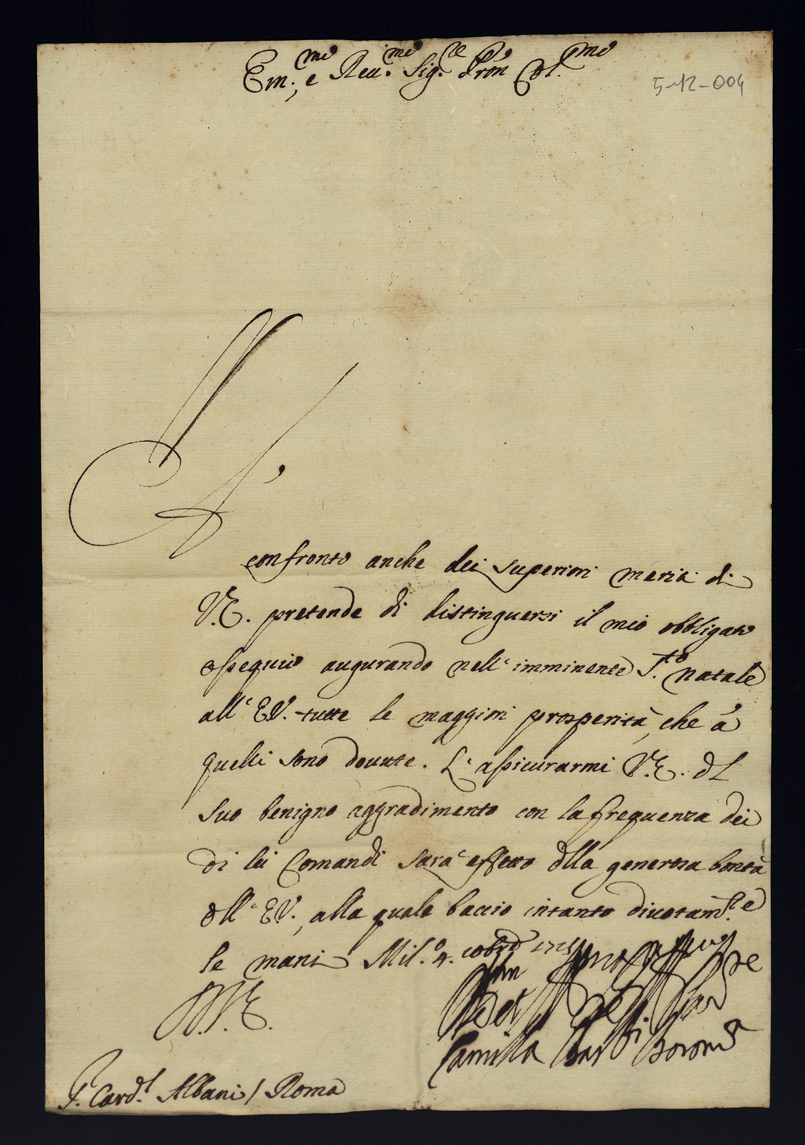 Em.mo, e Reu.mo Sig.re Prōn Col.mo
5-12-004
A'
confronto anche dei superiori meriti di
V.E. pretende di distinguersi il mio obbligato
ossequio augurando nell'imminente S.to natale
all'EV. tutte le maggiori prosperità, che à
quelli sono dovute. L'assicurarmi V.E. dl
suo benigno aggradimento con la frequenza dei
di lei Comandi sara effetto dlla generosa bontà
dll'EV., alla quale baccio intanto divotam.te
le mani Mil.o 4.
V.E.
Camilla Barbi
S. Card.l Albani / Roma